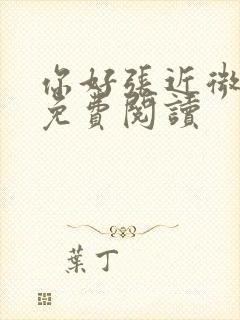 你好張近微
免費閱讀
葉丁